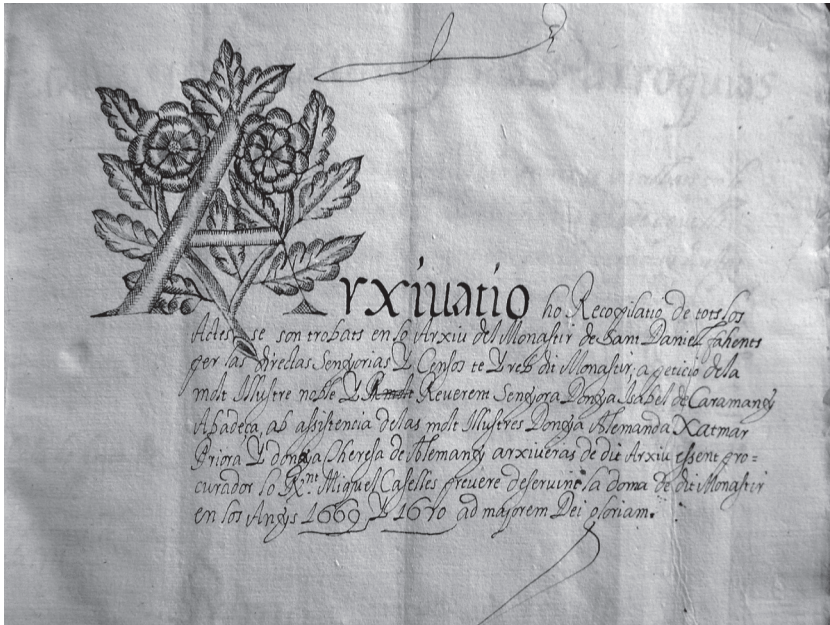 Arxiuatio ho Recopilatio de tots los
Actes se son trobats en lo Arxiu del Monastir de Sant Daniel fahents
per las directas Senyorias Y Censos te Y reb dit Monastir, a peticio dela
molt Illustre noble Y Reverent Senyora Donya Isabel de Caramany
Abadeça, ab assistencia delas molt Illustres Donya Alemanda Xatmar
Priora Y donya Theresa de Alemany arxiveras de dit Arxiu essent pro=
curador lo R.nt Miquel Caselles prevere deservint la doma de dit Monastir
en los Anys 1669 Y 1670 ad majorem Dei gloriam.